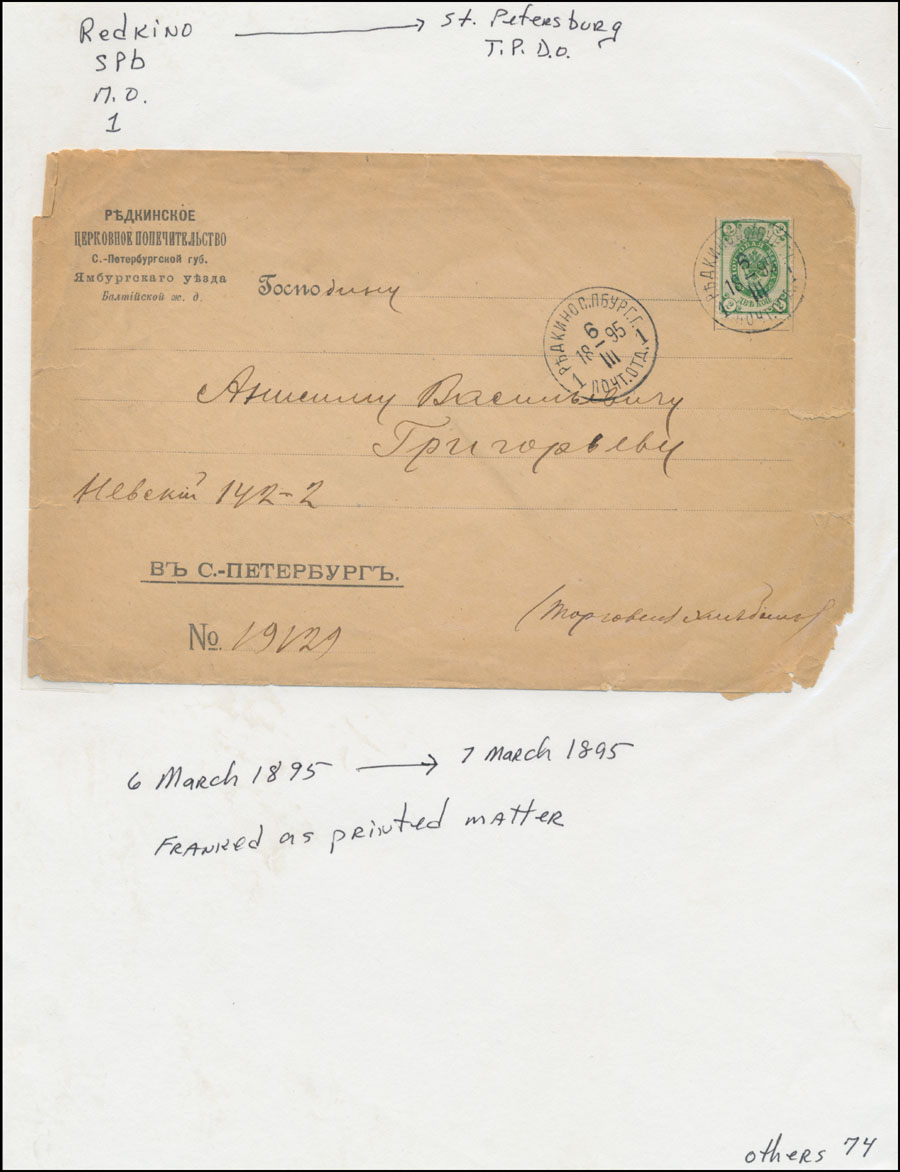 Redkino → St. Petersburg
SPb T.P.D.O.
П.О.
1
РѢДКИНСКОЕ
ЦЕРКОВНОЕ ПОПЕЧИТЕЛЬСТВО
С.-Петербургской губ.
Ямбургскаго уѣзда
Балтійской ж. д.
Господину
РѢДКИНО С.ПБУРГ.Г.
6
18-95
III
1 ПОЧТ.ОТД. 1
РѢДКИНО
6
18-95
III
ДВѢ КОП
Анисиму Васильевичу
Григорьеву
Невскій 142-2
ВЪ С.-ПЕТЕРБУРГЪ.
№ 19129
(торговля хлѣбомъ)
6 March 1895 → 7 March 1895
Franked as printed matter
others 74